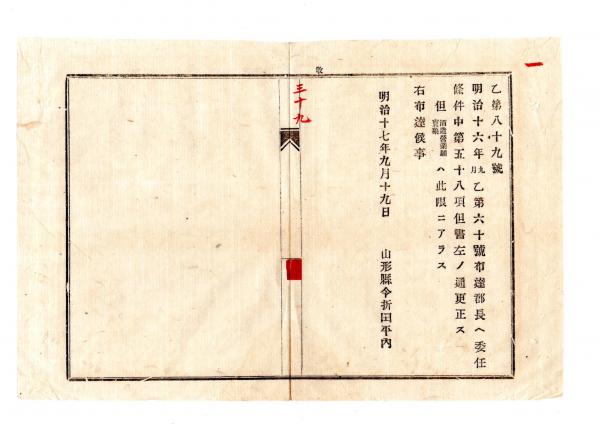 一
乙第八十九號
明治十六年九月乙第六十號布達郡長ヘ委任
條件中第五十八項但書左ノ通更正ス
但酒造營業願賣藥ハ此限ニアラス
右布達候事
明治十七年九月十九日
山形縣令折田平內
三十九